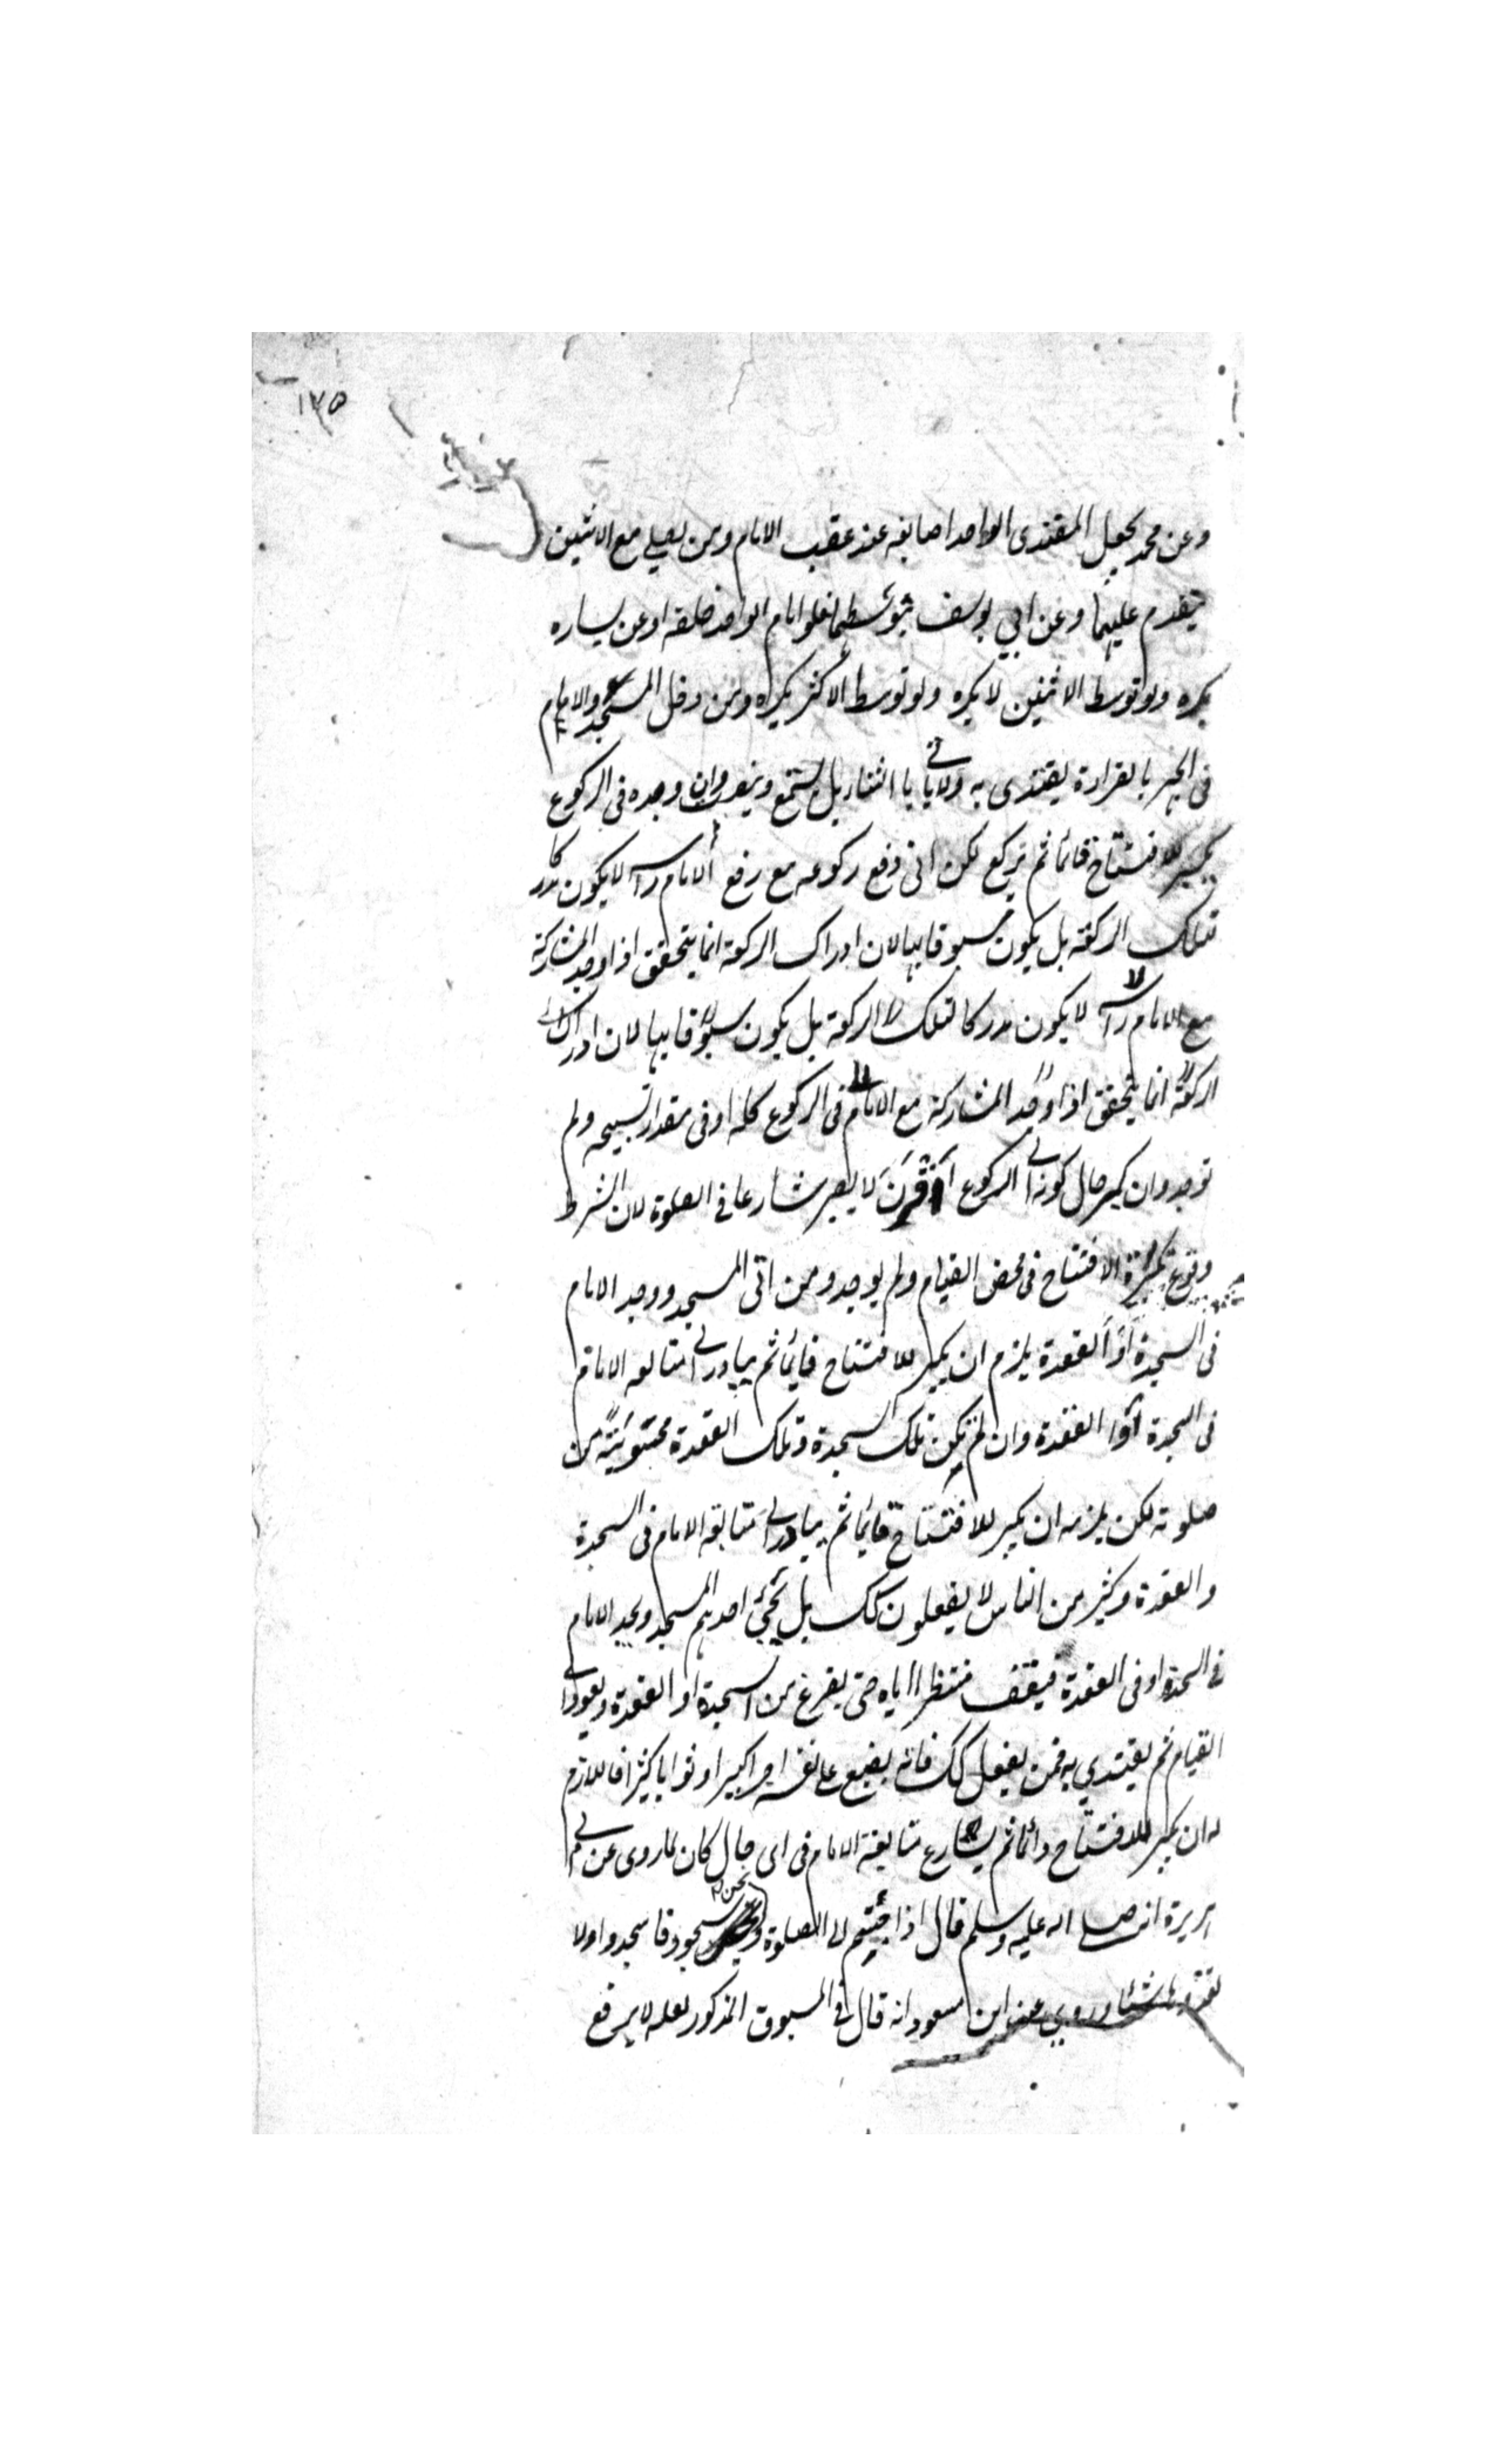 ١٧٥
وعن محمد يجعل المقتدى الواحد اصابعه عند عقب الامام ومن يصلي مع الاثنين
يتقدم عليهما وعن ابي يوسف يتوسطهما فلو اقام الواحد خلفه او عن يساره
يكره ولو توسط الاثنين لا يكره ولو توسط الاكثر يكره ومن دخل المسجد والامام
فى الجهر بالقراءة يقتدى به ولا ياتى بالثناء بل يستمع وينصت وان وجده فى الركوع
يكبر للافتتاح قائما ثم يركع لكن ان وقع ركوعه مع رفع الامام رأسه لا يكون مدركا
لتلك الركعة بل يكون مسبوقا بها لان ادراك الركعة انما يتحقق اذا وجد المشاركة
مع الامام رأسه لا يكون مدركا لتلك الركعة بل يكون مسبوقا بها لان ادراك
الركعة انما يتحقق اذا وجد المشاركة مع الامام فى الركوع كله او فى مقدار تسبيحه ولم
توجد وان كبر حال كونه الى الركوع اقرب لا يصير شارعا فى الصلوة لان الشرط
وقوع تكبيرة الافتتاح فى محض القيام ولم يوجد ومن اتى المسجد ووجد الامام
فى السجدة او القعدة يلزم ان يكبر للافتتاح قائما ثم يبادر الى متابعة الامام
فى السجدة او القعدة وان لم يكن تلك السجدة وتلك القعدة محسوبة من
صلوته لكن يلزمه ان يكبر للافتتاح قائما ثم يبادر الى متابعة الامام فى السجدة
والقعدة وكثير من الناس لا يفعلون كك بل يجئ احدهم المسجد ويجد الامام
فى السجدة او فى القعدة فيقف منتظرا اياه حتى يفرغ من السجدة او القعدة ويعود الى
القيام ثم يقتدي به فمن يفعل كك فانه يضيع على نفسه اجرا كبيرا وثوابا كثيرا فاللازم
له ان يكبر للافتتاح دائما ثم يسارع متابعة الامام فى اى حال كان لما روى عن ابى
هريرة انه صلى الله عليه وسلم قال اذا جئتم الى الصلوة ونحن سجود فاسجدوا ولا
تعتدوها شئا وروي عن ابن مسعود انه قال فى المسبوق المذكور لعله لا يرفع